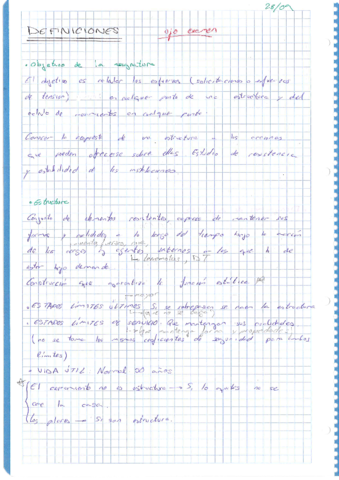 28/09
DEFINICIONES ojo examen
• Objetivo de la asignatura
El objetivo es calcular los esfuerzos (solicitaciones o esfuerzos
de tensión) en cualquier punto de una estructura y del
estado de movimientos en cualquier punto.
Conocer la respuesta de una estructura a las acciones
que pueden ejercerse sobre ellas. Estudio de resistencia
y estabilidad de las
• Estructura
Conjunto de elementos resistentes, capaces de mantener sus
formas y cualidades a lo largo del tiempo bajo la acción
de las cargas y agentes externos a los que ha de
estar bajo demanda.
Construcción que la función estática
• ESTADOS LÍMITES ÚLTIMOS. Si se sobrepasan se la estructura
• ESTADOS LÍMITES DE SERVICIO. Que mantengan sus cualidades.
(no se toma los mismos coeficientes de seguridad para ambos
límites)
• VIDA ÚTIL Normal 50 años
El no es estructura → Si lo quitas no se
cae la casa.
Los pilares → Si son estructura.